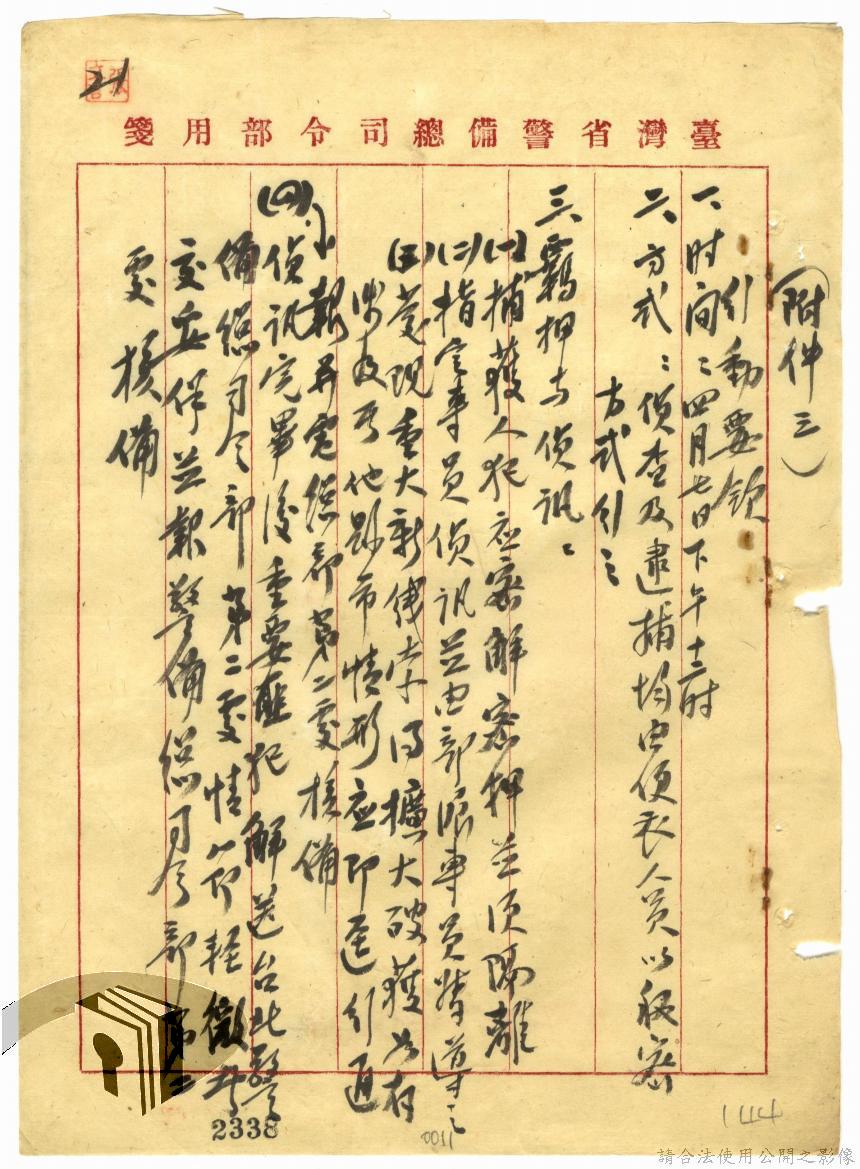 臺灣省警備總司令部用箋
21
(附件三)
行動要領
一、时间：四月七日下午十二时
二、方式：偵查及逮捕均由便衣人員以秘密
方式行之
三、羈押与偵訊：
(一)捕獲人犯应密解密押並须隔離
(二)指定專員偵訊並由部派專員督導之
(三)發現重大新線索得擴大破獲如有
涉及其他縣市情形应即逕行通
報并電總部第二處核備
(四)偵訊完畢後重要匪犯解送台北警
備總司令部第二處情節輕微者
交保並報警備總司令部第二
處核備
2338
0011
144
請合法使用公開之影像